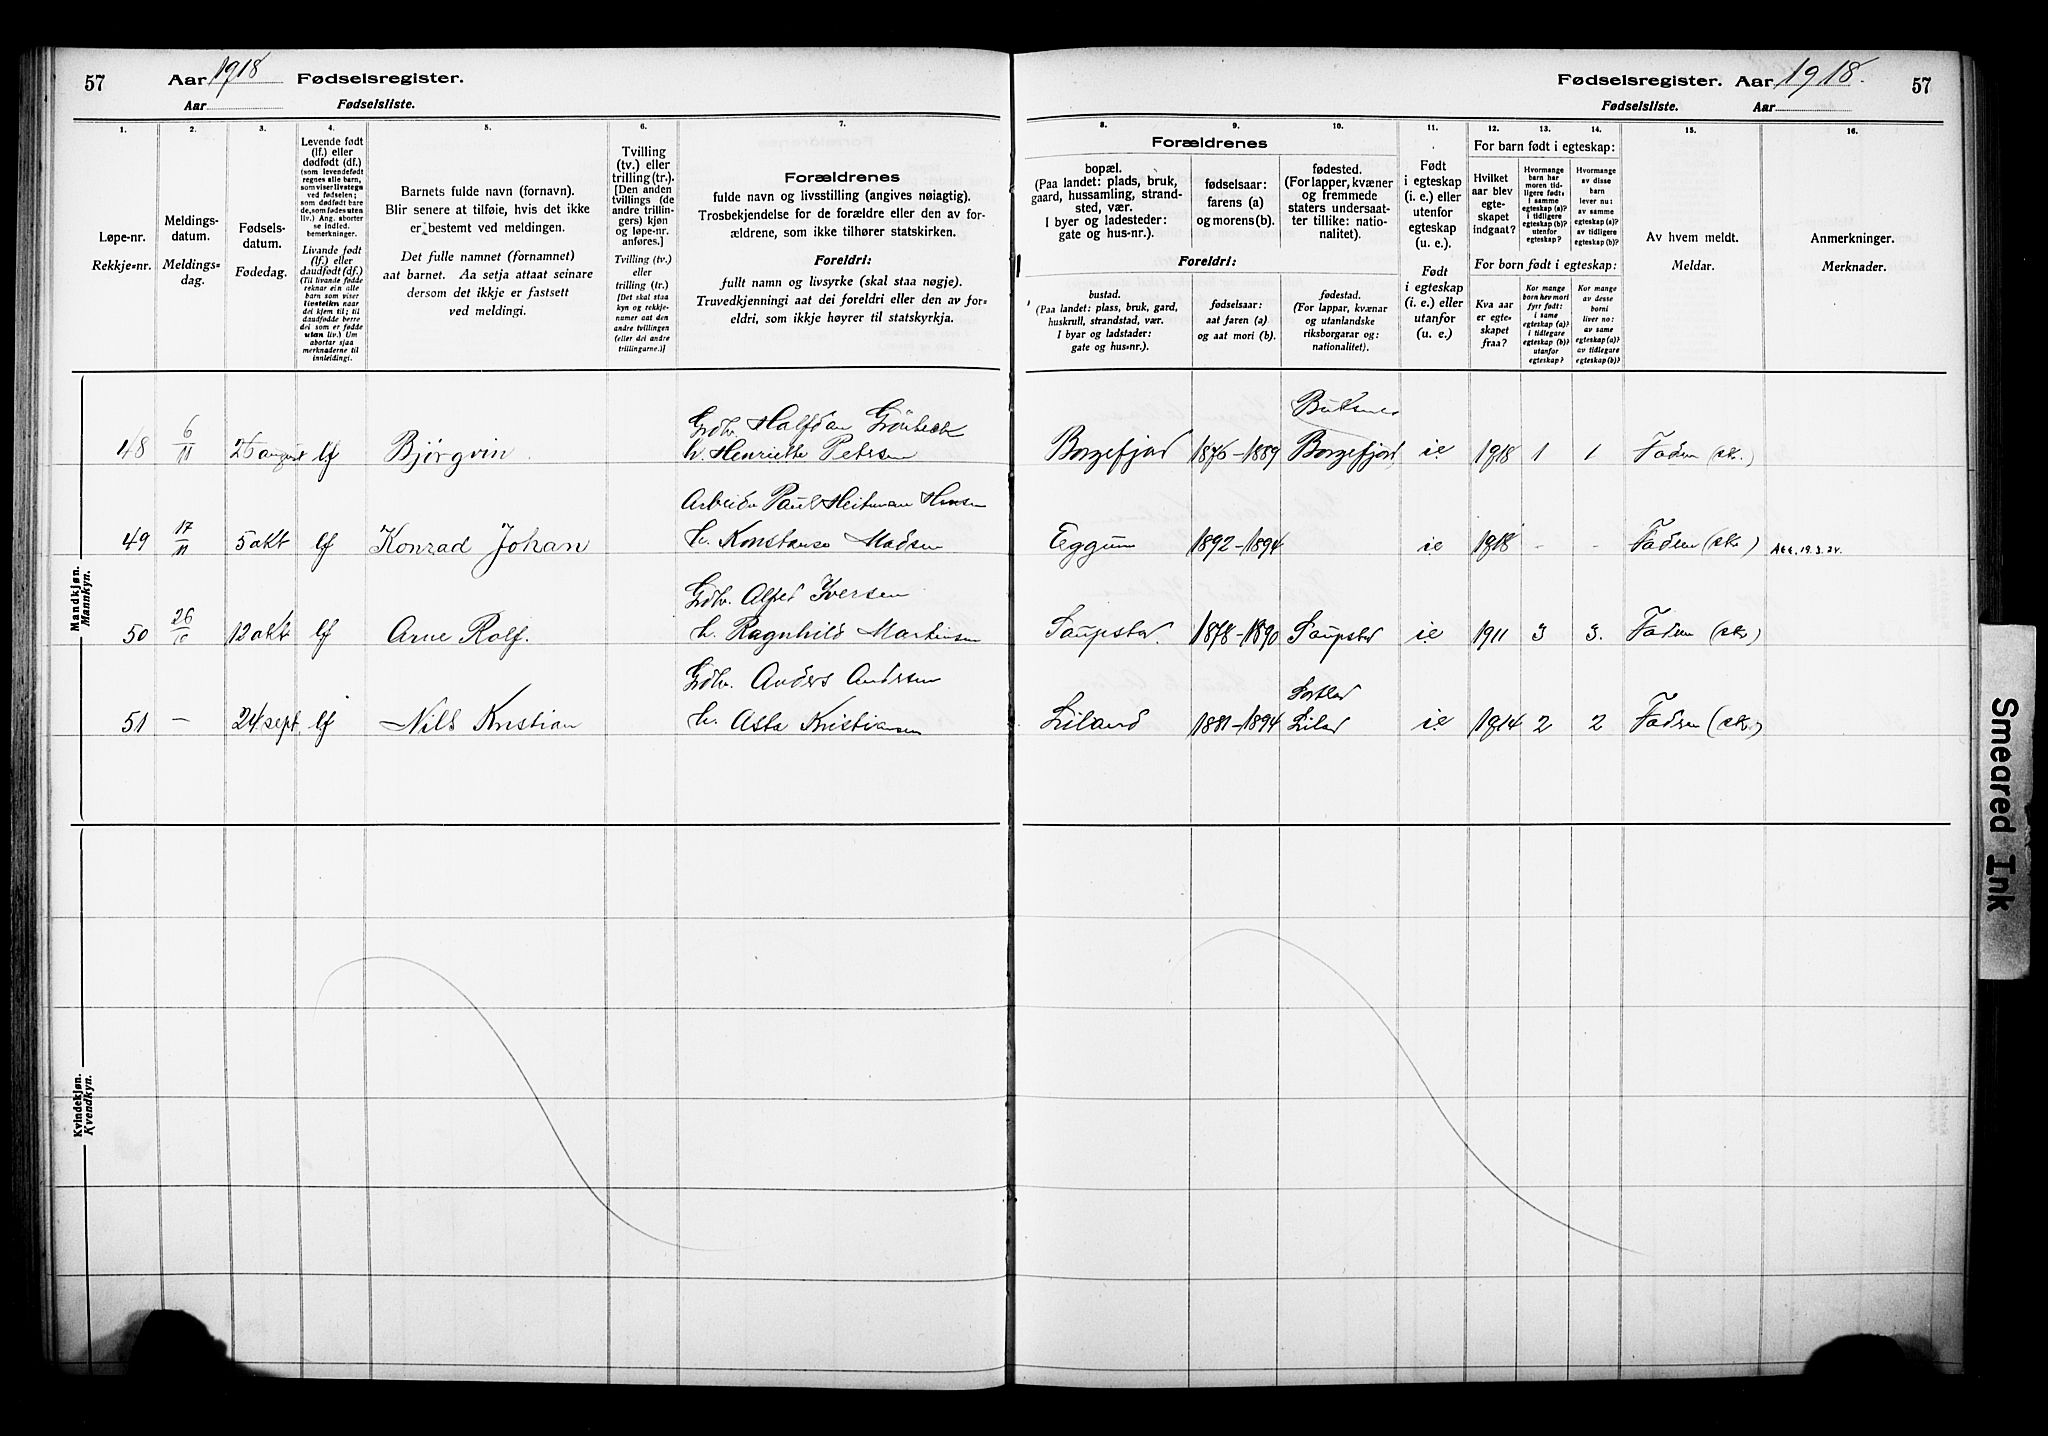 57 Aar 1918 Fødselsregister.
Aar Fødselsliste.
1. 2. 3. 4. 5. 6. 7.
Løpe-nr.
Rekkje-nr.
Meldings-
datum.
Meldings-
dag.
Fødsels-
datum.
Fødedag.
Levende født
(lf.) eller
dødfødt (df.)
(som levendefødt
regnes alle barn,
som viser livstegn
ved fødselen;
som dødfødt bare
de, som fødes uten
liv.) Ang. aborter
se indled.
bemerkninger.
Livande født
(lf.) eller
daudfødt (df.)
(Til livande fødde
reknar ein alle
barn som viser
livsteikn naar
dei kjem til; til
daudfødde berre
dei som er fødde
utan liv.) Um
abortar sjaa
merknaderne til
innleidingi.
Barnets fulde navn (fornavn).
Blir senere at tilføie, hvis det ikke
er bestemt ved meldingen.
Det fulle namnet (fornamnet)
aat barnet. Aa setja attaat seinare
dersom det ikkje er fastsett
ved meldingi.
Tvilling
(tv.) eller
trilling(tr.).
[Den anden
tvillings (de
andre trillin-
gers) kjøn
og løpe-nr.
anføres.]
Tvilling (tv.)
eller
trilling (tr.)
[Det skal staa
kyn og rekkje-
numer aat den
andre tvillingen
(eller dei andre
trillingarne.)]
Forældrenes
fulde navn og livsstilling (angives nøiagtig).
Trosbekjendelse for de forældre eller den av for-
ældrene, som ikke tilhører statskirken.
Foreldri:
fullt namn og livsyrke (skal staa nøgje).
Truvedkjenningi aat dei foreldri eller den av for-
eldri, som ikkje høyrer til statskyrkja.
Mandkjøn.
Mannkyn.
48 6/11 26 august lf Bjørgvin Gdbr. Halfdan Grönbeck
h. Henriette Petersen
49 17/11 5 okt lf Konrad Johan Arbeider Paul Heitman Hansen
h. Konstanse Madsen
50 26/10 12 okt lf Arne Rolf. Gdbr. Alfred Iversen
h. Ragnhild Martinsen
51 — 24 sept lf Nils Kristian Gdbr. Anders Andersen
h. Asta Kristiansen
Kvindekjøn.
Kvendkyn.
Fødselsregister. Aar 1918. 57
Fødselsliste. Aar
8. 9. 10. 11. 12. 13. 14. 15. 16.
Forældrenes
bopæl.
(Paa landet: plads, bruk,
gaard, hussamling, strand-
sted, vær.
I byer og ladesteder:
gate og hus-nr.).
fødselsaar:
farens (a)
og morens (b).
fødested.
(For lapper, kvæner
og fremmede
staters undersaat-
ter tillike: natio-
nalitet).
Foreldri:
bustad.
(Paa landet: plass, bruk, gard,
huskrull, strandstad, vær.
I byar og ladstader:
gate og hus-nr.).
fødselsaar:
aat faren (a)
og aat mori (b).
fødestad.
(For lappar, kvænar
og utanlandske
riksborgarar og:
nationalitet).
Født
i egteskap
(i. e.) eller
utenfor
egteskap
(u. e.).
Født
i egteskap
(i. e.) eller
utanfor
(u. e.).
For barn født i egteskap:
Hvilket
aar blev
egte-
skapet
indgaat?
Hvormange
barn har
moren tid-
ligere født:
i samme
egteskap (a)?
i tidligere
egteskap (b)?
utenfor
egteskap?
Hvormange
av disse
barn
lever nu:
av samme
egteskap (a)?
av tidligere
egteskap (b)?
For born født i egteskap:
Kva aar
er egte-
skapet
fraa?
Kor mange
born hev mori
fyrr født:
i same
egteskap (a)?
i tidlegare
egteskap (b)?
utanfor
egteskap?
Kor mange
av desse
borni
liver no:
av same
egteskap (a)?
av tidlegare
egteskap (b)?
Av hvem meldt.
Meldar.
Anmerkninger.
Merknader.
Borgefjord 1876–1889 Buksnes
Borgefjord i.e. 1918 1 1 Faderen (sk.)
Eggum 1892–1894 i.e. 1918 - - Faderen (sk.) 19.3.24.
Saupstad 1878–1890 Saupstad i.e. 1911 3 3. Faderen (sk.)
Liland 1881–1894 Sortland
Liland i.e. 1914 2 2 Faderen (sk.)
Smeared Ink